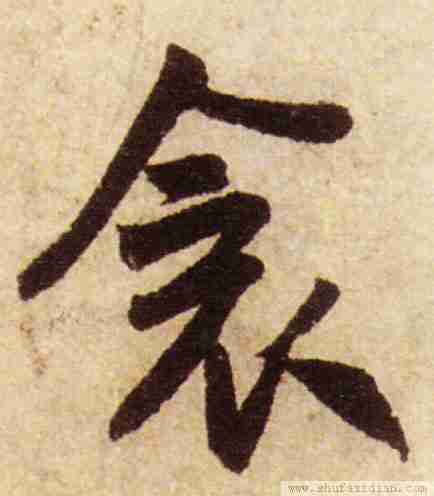 衾
www.shufazidian.com